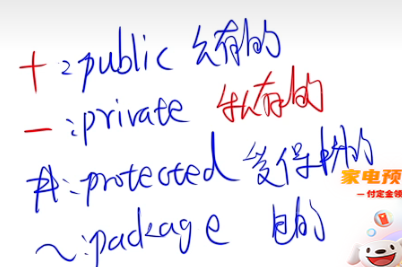 +:public 公有的
-:private 私有的
#:protected 受保护的
~:package 包的
家电预
一付定金领